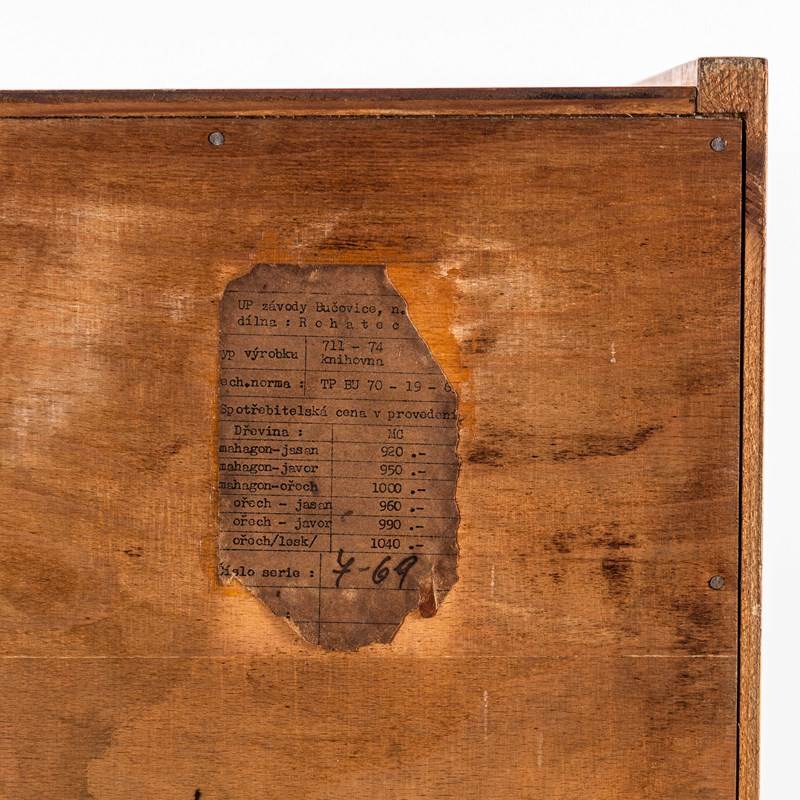 UP závody Bučovice, n.
dílna : Rohatec
yp výrobku 711 - 74
knihovna
ech.norma : TP BU 70 - 19 - 6
Spotřebitelská cena v provedení
Dřevina : MC
mahagon-jasan 920 .-
mahagon-javor 950 .-
mahagon-ořech 1000 .-
ořech - jasan 960 .-
ořech - javor 990 .-
ořech/lesk/ 1040 .-
číslo serie : 7-69